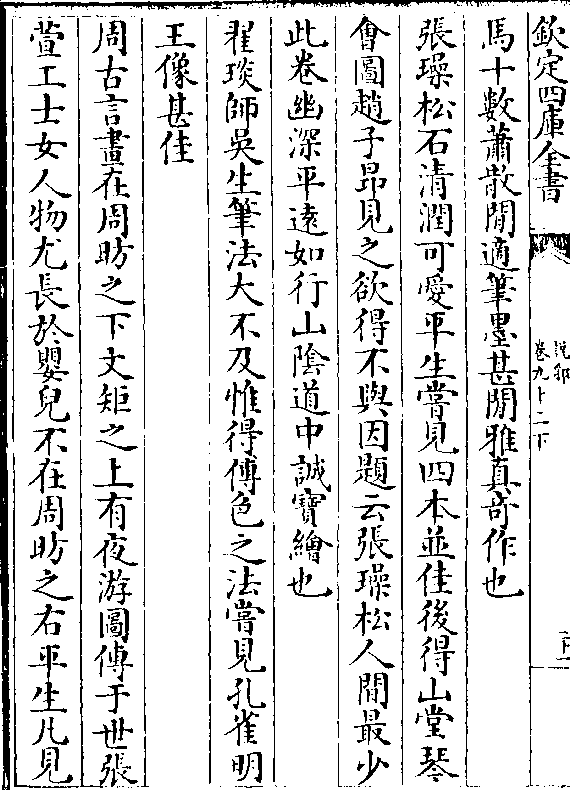 欽定四庫全書
說郛
卷九十二下
馬十數蕭散閒適筆墨甚閒雅真奇作也
張璪松石清潤可愛平生嘗見四本並佳後得山堂琴
會圖趙子昻見之欲得不與因題云張璪松人間最少
此卷幽深平遠如行山陰道中誠寶繪也
翟琰師吳生筆法大不及惟得傅色之法嘗見孔雀明
王像甚佳
周古言畫在周昉之下文矩之上有夜游圖傳于世張
萱工士女人物尤長於嬰兒不在周昉之右平生凡見